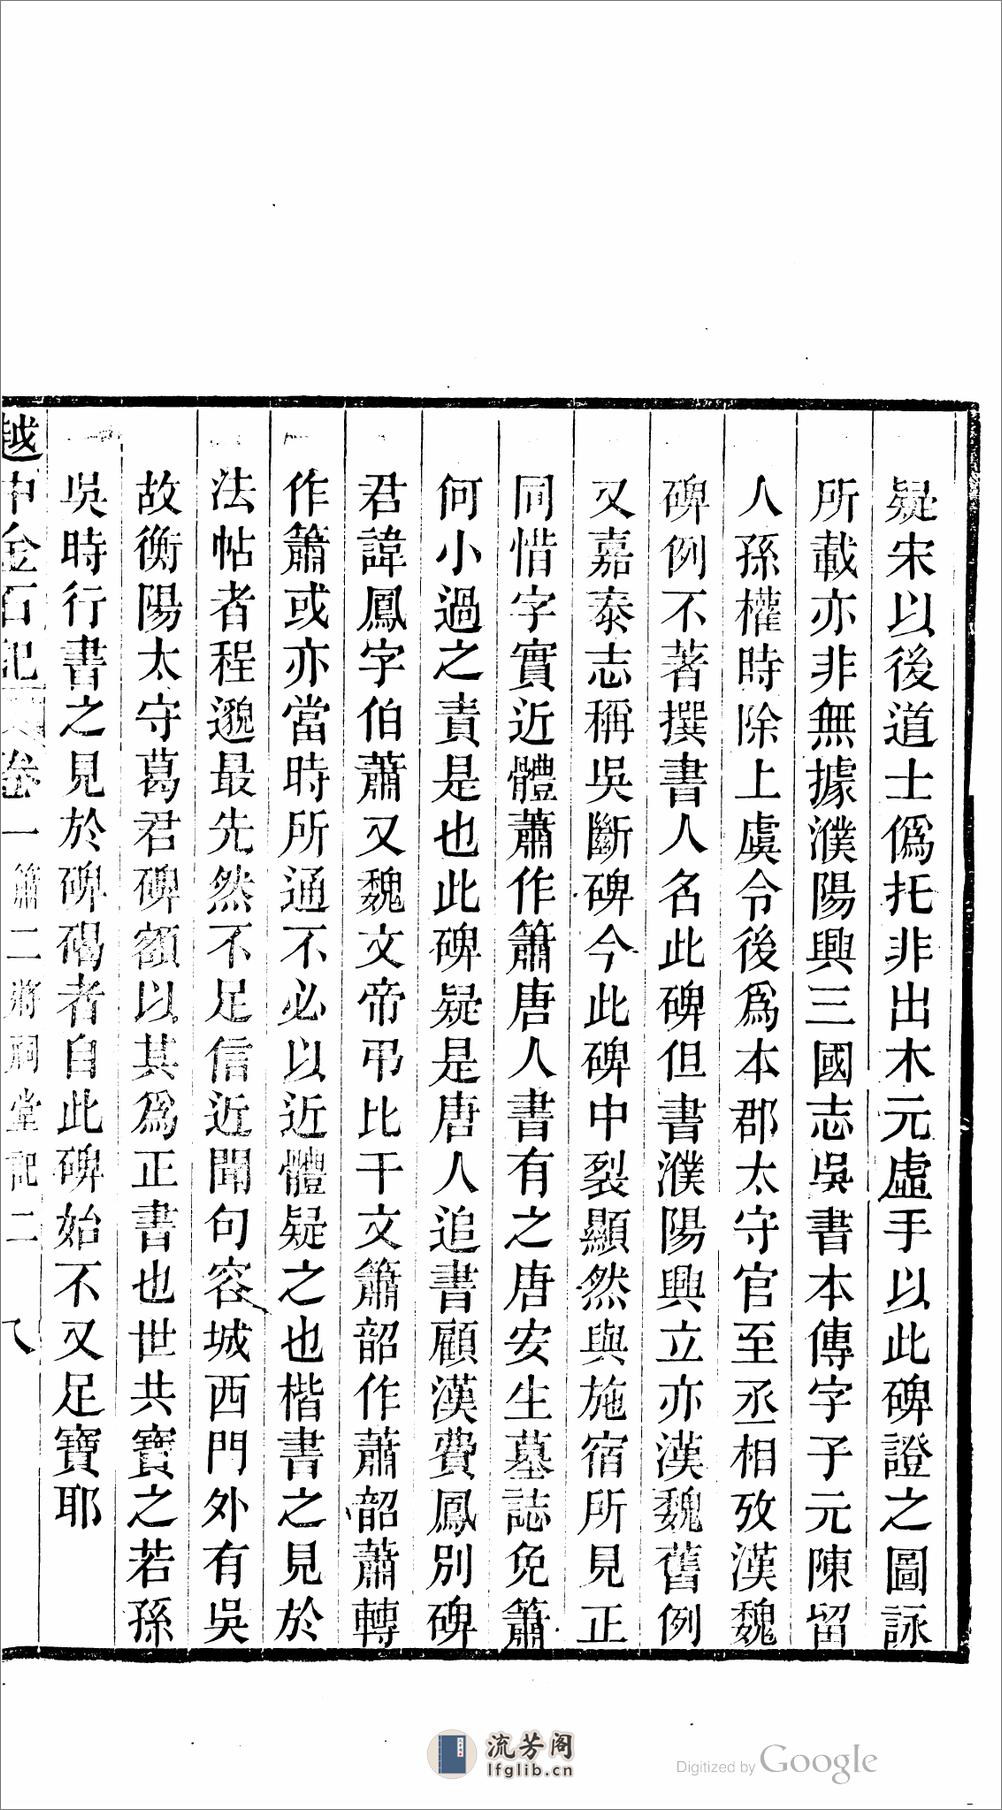 疑宋以後道士僞托非出木元虛手以此碑證之圖詠
所載亦非無據濮陽興三國志吳書本傳字子元陳留
人孫權時除上虞令後爲本郡太守官至丞相攷漢魏
碑例不著撰書人名此碑但書濮陽興立亦漢魏舊例
又嘉泰志稱吳斷碑今此碑中裂顯然與施宿所見正
同惜字實近體蕭作簫唐人書有之唐安生墓誌免簫
何小過之責是也此碑疑是唐人追書顧漢費鳳別碑
君諱鳳字伯蕭又魏文帝弔比干文簫韶作蕭韶蕭轉
作簫或亦當時所通不必以近體疑之也楷書之見於
法帖者程邈最先然不足信近聞句容城西門外有吳
故衡陽太守葛君碑額以其爲正書也世共寶之若孫
吳時行書之見於碑碣者自此碑始不又足寶耶
越中金石記 卷一 簫二將祠堂記二 八
流芳阁
lfglib.cn
Digitized by Google